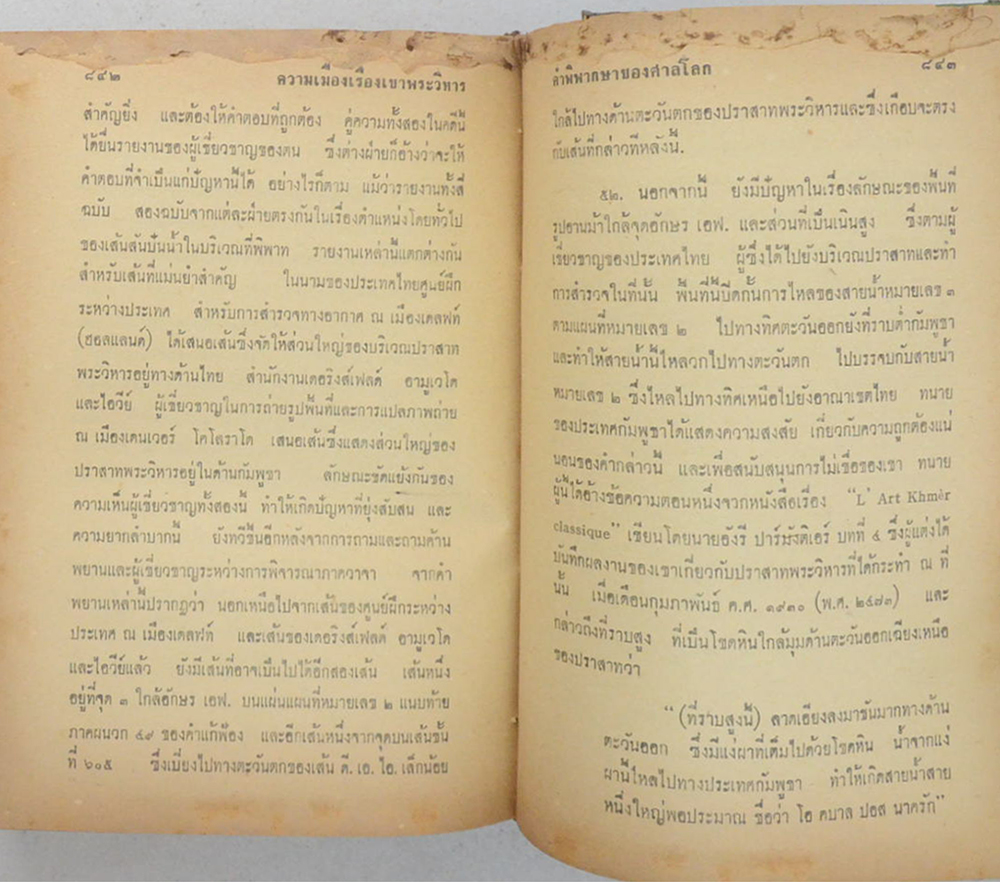 ๘๔๒ ความเมืองเรื่องเขาพระวิหาร
สำคัญยิ่ง และต้องให้คำตอบที่ถูกต้อง คู่ความทั้งสองในคดีนี้
ได้ยื่นรายงานของผู้เชี่ยวชาญของตน ซึ่งต่างฝ่ายก็อ้างว่าจะให้
คำตอบที่จำเป็นแก่ปัญหานี้ได้ อย่างไรก็ตาม แม้ว่ารายงานทั้งสี่
ฉบับ สองฉบับจากแต่ละฝ่ายตรงกันในเรื่องตำแหน่งโดยทั่วไป
ของเส้นสันปันน้ำในบริเวณที่พิพาท รายงานเหล่านี้แตกต่างกัน
สำหรับเส้นที่แม่นยำสำคัญ ในนามของประเทศไทยศูนย์ฝึก
ระหว่างประเทศ สำหรับการสำรวจทางอากาศ ณ เมืองเดลฟท์
(ฮอลแลนด์) ได้เสนอเส้นซึ่งจัดให้ส่วนใหญ่ของบริเวณปราสาท
พระวิหารอยู่ทางด้านไทย สำนักงานเดอริงส์เฟลด์ อามูเวโด
และไอวีย์ ผู้เชี่ยวชาญในการถ่ายรูปพื้นที่และการแปลภาพถ่าย
ณ เมืองเดนเวอร์ โคโลราโด เสนอเส้นซึ่งแสดงส่วนใหญ่ของ
ปราสาทพระวิหารอยู่ในด้านกัมพูชา ลักษณะขัดแย้งกันของ
ความเห็นผู้เชี่ยวชาญทั้งสองนี้ ทำให้เกิดปัญหาที่ยุ่งสับสน และ
ความยากลำบากนี้ ยังทวีขึ้นอีกหลังจากการถามและถามค้าน
พยานและผู้เชี่ยวชาญระหว่างการพิจารณาภาควาจา จากคำ
พยานเหล่านี้ปรากฏว่า นอกเหนือไปจากเส้นของศูนย์ฝึกระหว่าง
ประเทศ ณ เมืองเดลฟท์ และเส้นของเดอริงส์เฟลด์ อามูเวโด
และไอวีย์แล้ว ยังมีเส้นที่อาจเป็นไปได้อีกสองเส้น เส้นหนึ่ง
อยู่ที่จุด ๓ ใกล้อักษร เอฟ. บนแผ่นแผนที่หมายเลข ๒ แนบท้าย
ภาคผนวก ๔๙ ของคำแก้ฟ้อง และอีกเส้นหนึ่งจากจุดบนเส้นชั้น
ที่ ๖๐๕ ซึ่งเบี่ยงไปทางตะวันตกของเส้น ดี. เอ. ไอ. เล็กน้อย
คำพิพากษาของศาลโลก ๘๔๓
ใกล้ไปทางด้านตะวันตกของปราสาทพระวิหารและซึ่งเกือบจะตรง
กับเส้นที่กล่าวทีหลังนี้.
๕๒. นอกจากนี้ ยังมีปัญหาในเรื่องลักษณะของพื้นที่
รูปอานม้าใกล้จุดอักษร เอฟ. และส่วนที่เป็นเนินสูง ซึ่งตามผู้
เชี่ยวชาญของประเทศไทย ผู้ซึ่งได้ไปยังบริเวณปราสาทและทำ
การสำรวจในที่นั้น พื้นที่นี้ปิดกั้นการไหลของสายน้ำหมายเลข ๓
ตามแผนที่หมายเลข ๒ ไปทางทิศตะวันออกยังที่ราบต่ำกัมพูชา
และทำให้สายน้ำนี้ไหลวกไปทางตะวันตก ไปบรรจบกับสายน้ำ
หมายเลข ๒ ซึ่งไหลไปทางทิศเหนือไปยังอาณาเขตไทย ทนาย
ของประเทศกัมพูชาได้แสดงความสงสัย เกี่ยวกับความถูกต้องแน่
นอนของคำกล่าวนี้ และเพื่อสนับสนุนการไม่เชื่อของเขา ทนาย
ผู้นี้ได้อ้างข้อความตอนหนึ่งจากหนังสือเรื่อง “L' Art Khmèr
classique” เขียนโดยนายอังรี ปาร์มังติเอร์ บทที่ ๔ ซึ่งผู้แต่งได้
บันทึกผลงานของเขาเกี่ยวกับปราสาทพระวิหารที่ได้กระทำ ณ ที่
นั้น เมื่อเดือนกุมภาพันธ์ ค.ศ. ๑๙๓๐ (พ.ศ. ๒๔๗๓) และ
กล่าวถึงที่ราบสูง ที่เป็นโขดหินใกล้มุมด้านตะวันออกเฉียงเหนือ
ของปราสาทว่า
“(ที่ราบสูงนี้) ลาดเอียงลงมาชันมากทางด้าน
ตะวันออก ซึ่งมีแง่ผาที่เต็มไปด้วยโขดหิน น้ำจากแง่
ผานี้ไหลไปทางประเทศกัมพูชา ทำให้เกิดสายน้ำสาย
หนึ่งใหญ่พอประมาณ ชื่อว่า โอ คบาล ปอส นาครัก”